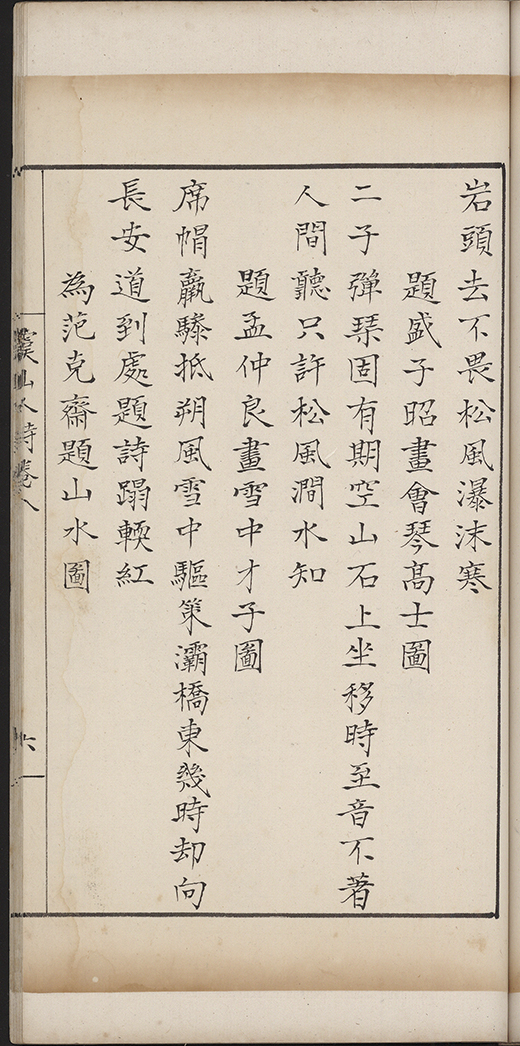 岩頭去不畏松風瀑沫寒
題盛子昭畫會琴髙士圖
二子彈琹固有期空山石上坐移時至音不著
人間聽只許松風澗水知
題孟仲良畫雪中才子圖
席帽羸驂抵朔風雪中驅策灞橋東幾時却向
長安道到處題詩蹋輭紅
為范克齋題山水圖
山人詩卷八
六